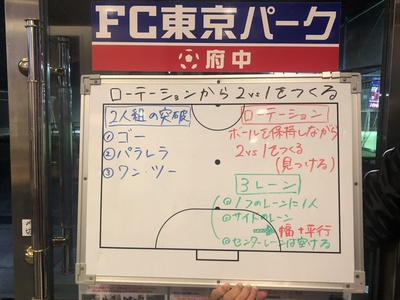 FC東京パーク
府中
ローテーションから2vs1をつくる
2人組の突破
① ゴー
② パラレラ
③ ワン・ツー
ローテーション
ボールを保持しながら
2vs1をつくる
(見つける)
3レーン
1つのレーンに1人
サイドのレーン
幅+平行
センターレーンは空ける